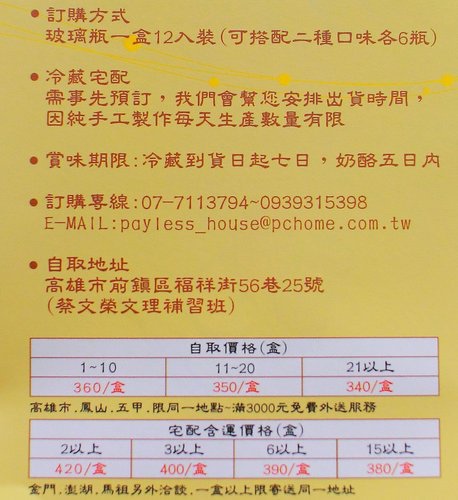 ● 訂購方式
玻璃瓶一盒12入裝(可搭配二種口味各6瓶)
● 冷藏宅配
需事先預訂，我們會幫您安排出貨時間，
因純手工製作每天生產數量有限
● 賞味期限:冷藏到貨日起七日，奶酪五日內
● 訂購專線:07-7113794~0939315398
E-MAIL:payless_house@pchome.com.tw
● 自取地址
高雄市前鎮區福祥街56巷25號
(蔡文榮文理補習班)
自取價格(盒)
1~10 11~20 21以上
360/盒 350/盒 340/盒
高雄市.鳳山.五甲.限同一地點~滿3000元免費外送服務
宅配含運價格(盒)
2以上 3以上 6以上 15以上
420/盒 400/盒 390/盒 380/盒
金門.澎湖.馬祖另外洽談.一盒以上限寄送同一地址